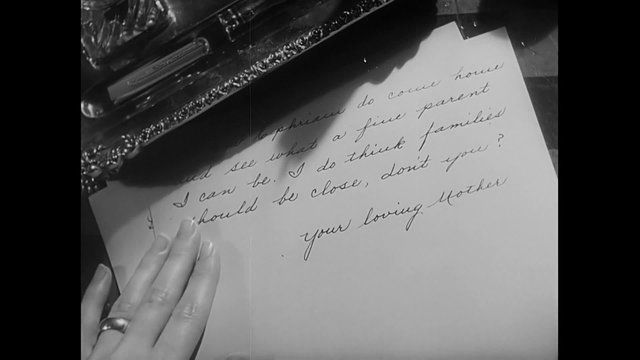 do come home
see what a fine parent
I can be. I do think families
should be close, don't you?
Your loving Mother